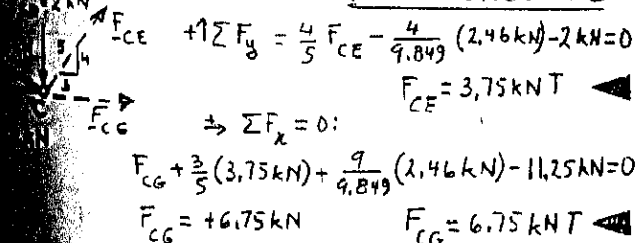 2 kN
F_CE
5
4
3
C
F_CG
+↑ΣF_y = 4/5 F_CE - 4/9.849 (2.46 kN) - 2 kN = 0
F_CE = 3.75 kN T ◄
+→ ΣF_x = 0:
F_CG + 3/5 (3.75 kN) + 9/9.849 (2.46 kN) - 11.25 kN = 0
F_CG = +6.75 kN F_CG = 6.75 kN T ◄